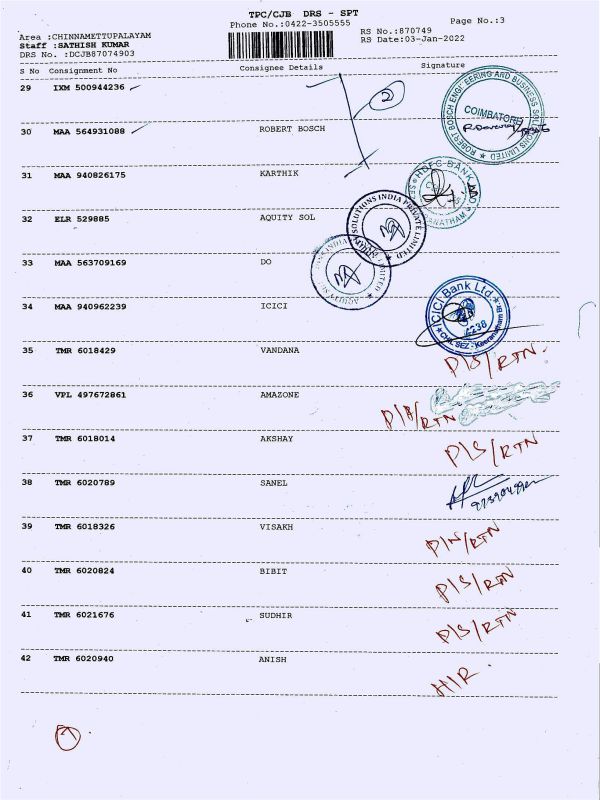 TPC/CJB DRS - SPT
Phone No.:0422-3505555
Page No.:3
Area :CHINNAMETTUPALAYAM
Staff :SATHISH KUMAR
DRS No. :DCJB87074903
RS No.:870749
RS Date:03-Jan-2022
S No Consignment No Consignee Details Signature
29 IXM 500944236
2
30 MAA 564931088 ROBERT BOSCH
ROBERT BOSCH ENGINEERING AND BUSINESS SOLUTIONS LIMITED
COIMBATORE
31 MAA 940826175 KARTHIK
HDFC BANK
32 ELR 529885 AQUITY SOL
SOLUTIONS INDIA PRIVATE LIMITED
33 MAA 563709169 DO
34 MAA 940962239 ICICI
ICICI Bank Ltd.
CHIL SEZ - Keeranatham Br.
35 TMR 6018429 VANDANA P/S/RTN.
36 VPL 497672861 AMAZONE
37 TMR 6018014 AKSHAY P/S/RTN
38 TMR 6020789 SANEL
39 TMR 6018326 VISAKH P/N/RTN
40 TMR 6020824 BIBIT P/S/RTN
41 TMR 6021676 SUDHIR P/S/RTN
42 TMR 6020940 ANISH H/R.